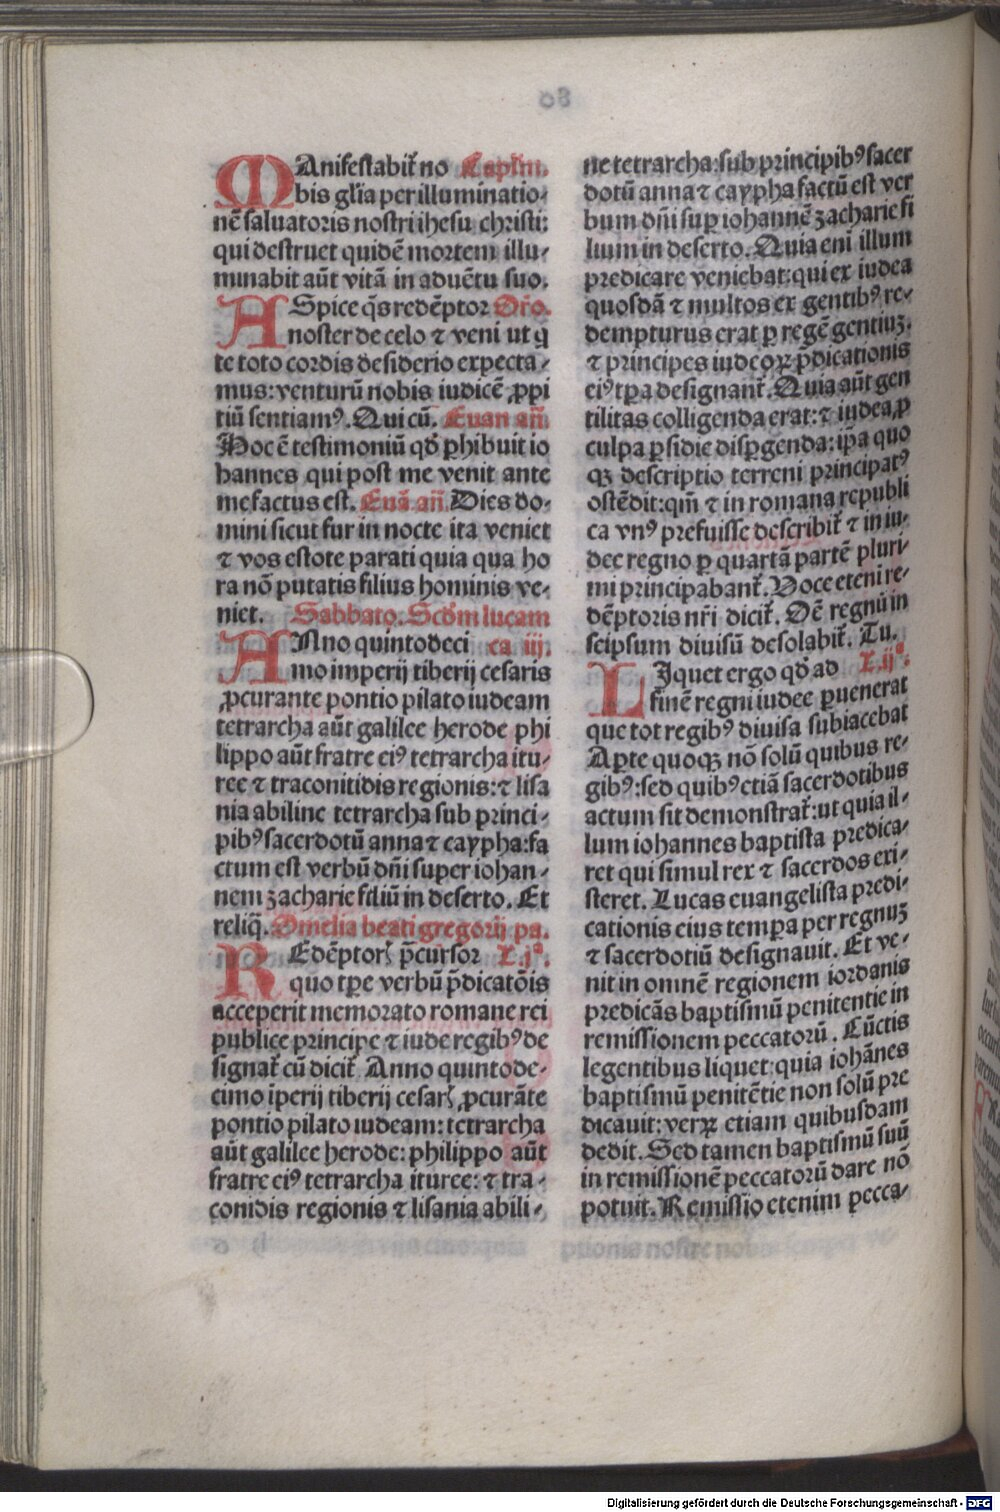 MAnifestabit᷑ no Capl᷑m.
bis gl᷑ia per illuminatio-
nē saluatoris nostri ihesu christi:
qui destruet quidē mortem illu-
minabit aūt vitā in aduētu suo.
ASpice q̄s redēptor Or᷑o.
noster de celo ⁊ veni ut q̄
te toto cordis desiderio expecta-
mus: venturū nobis iudicē ꝓpi
tiū sentiamꝰ. Qui cū. Euan añ.
Hoc ē testimoniū qd̄ ꝑhibuit io
hannes qui post me venit ante
me factus est. Euā añ. Dies do-
mini sicut fur in nocte ita veniet
⁊ vos estote parati quia qua ho
ra nō putatis filius hominis ve-
niet. Sabbato. Scd᷑m lucam
ANno quintodeci ca iij.
mo imperij tiberij cesaris
ꝓcurante pontio pilato iudeam
tetrarcha aūt galilee herode phi
lippo aūt fratre eiꝰ tetrarcha itu-
ree ⁊ traconitidis regionis: ⁊ lisa
nia abiline tetrarcha sub princi-
pibꝰ sacerdotū anna ⁊ caypha: fa
ctum est verbū dñi super iohan-
nem zacharie filiū in deserto. Et
reliq̄. Omelia beati gregorij pa.
REdēptorꝭ p̄cursor L. jª.
quo tꝑe verbū p̄dicatōis
acceperit memorato romane rei
publice principe ⁊ iude regibꝰ de
signat᷑ cū dicit᷑ Anno quintode-
cimo īperij tiberij cesarꝭ ꝓcurāte
pontio pilato iudeam: tetrarcha
aūt galilee herode: philippo aūt
fratre eiꝰ tetrarcha ituree: ⁊ tra-
conidis regionis ⁊ lisania abili-
ne tetrarcha: sub principibꝰ sacer
dotū anna ⁊ caypha factū est ver
bum dñi suꝑ iohannē zacharie fi
lium in deserto. Quia eni illum
predicare veniebat: qui ex iudea
quosdā ⁊ multos ex gentibꝰ re-
dempturus erat ꝑ regē gentiuꝫ.
⁊ principes iudeoꝝ p̄dicationis
eiꝰ tꝑa designant᷑. Quia aūt gen
tilitas colligenda erat: ⁊ iudea ꝓ
culpa ꝑfidie disꝑgenda: ip̄a quo
qꝫ descriptio terreni principatꝰ
ostēdit: qm̄ ⁊ in romana republi
ca vnꝰ prefuisse describit᷑ ⁊ in iu-
dee regno ꝑ quartā partē pluri-
mi principabant᷑. Voce eteni re-
dēptoris nr̄i dicit᷑. Oē regnū in
seipsum diuisū desolabit᷑. Tu.
LIquet ergo qd̄ ad L. ijª.
finē regni iudee ꝑuenerat
que tot regibꝰ diuisa subiacebat
Aꝑte quoqꝫ nō solū quibus re-
gibꝰ: sed quibꝰ etiā sacerdotibus
actum sit demonstrat᷑: ut quia il-
lum iohannes baptista predica-
ret qui simul rex ⁊ sacerdos exi-
steret. Lucas euangelista predi-
cationis eius tempa per regnuꝫ
⁊ sacerdotiū designauit. Et ve-
nit in omnē regionem iordanis
predicās baptismū penitentie in
remissionem peccatorū. Cūctis
legentibus liquet: quia iohānes
baptismū penitētie non solū pre
dicauit: veꝝ etiam quibusdam
dedit. Sed tamen baptismū suū
in remissionē peccatorū dare nō
potuit. Remissio etenim pecca-
Digitalisierung gefördert durch die Deutsche Forschungsgemeinschaft - DFG